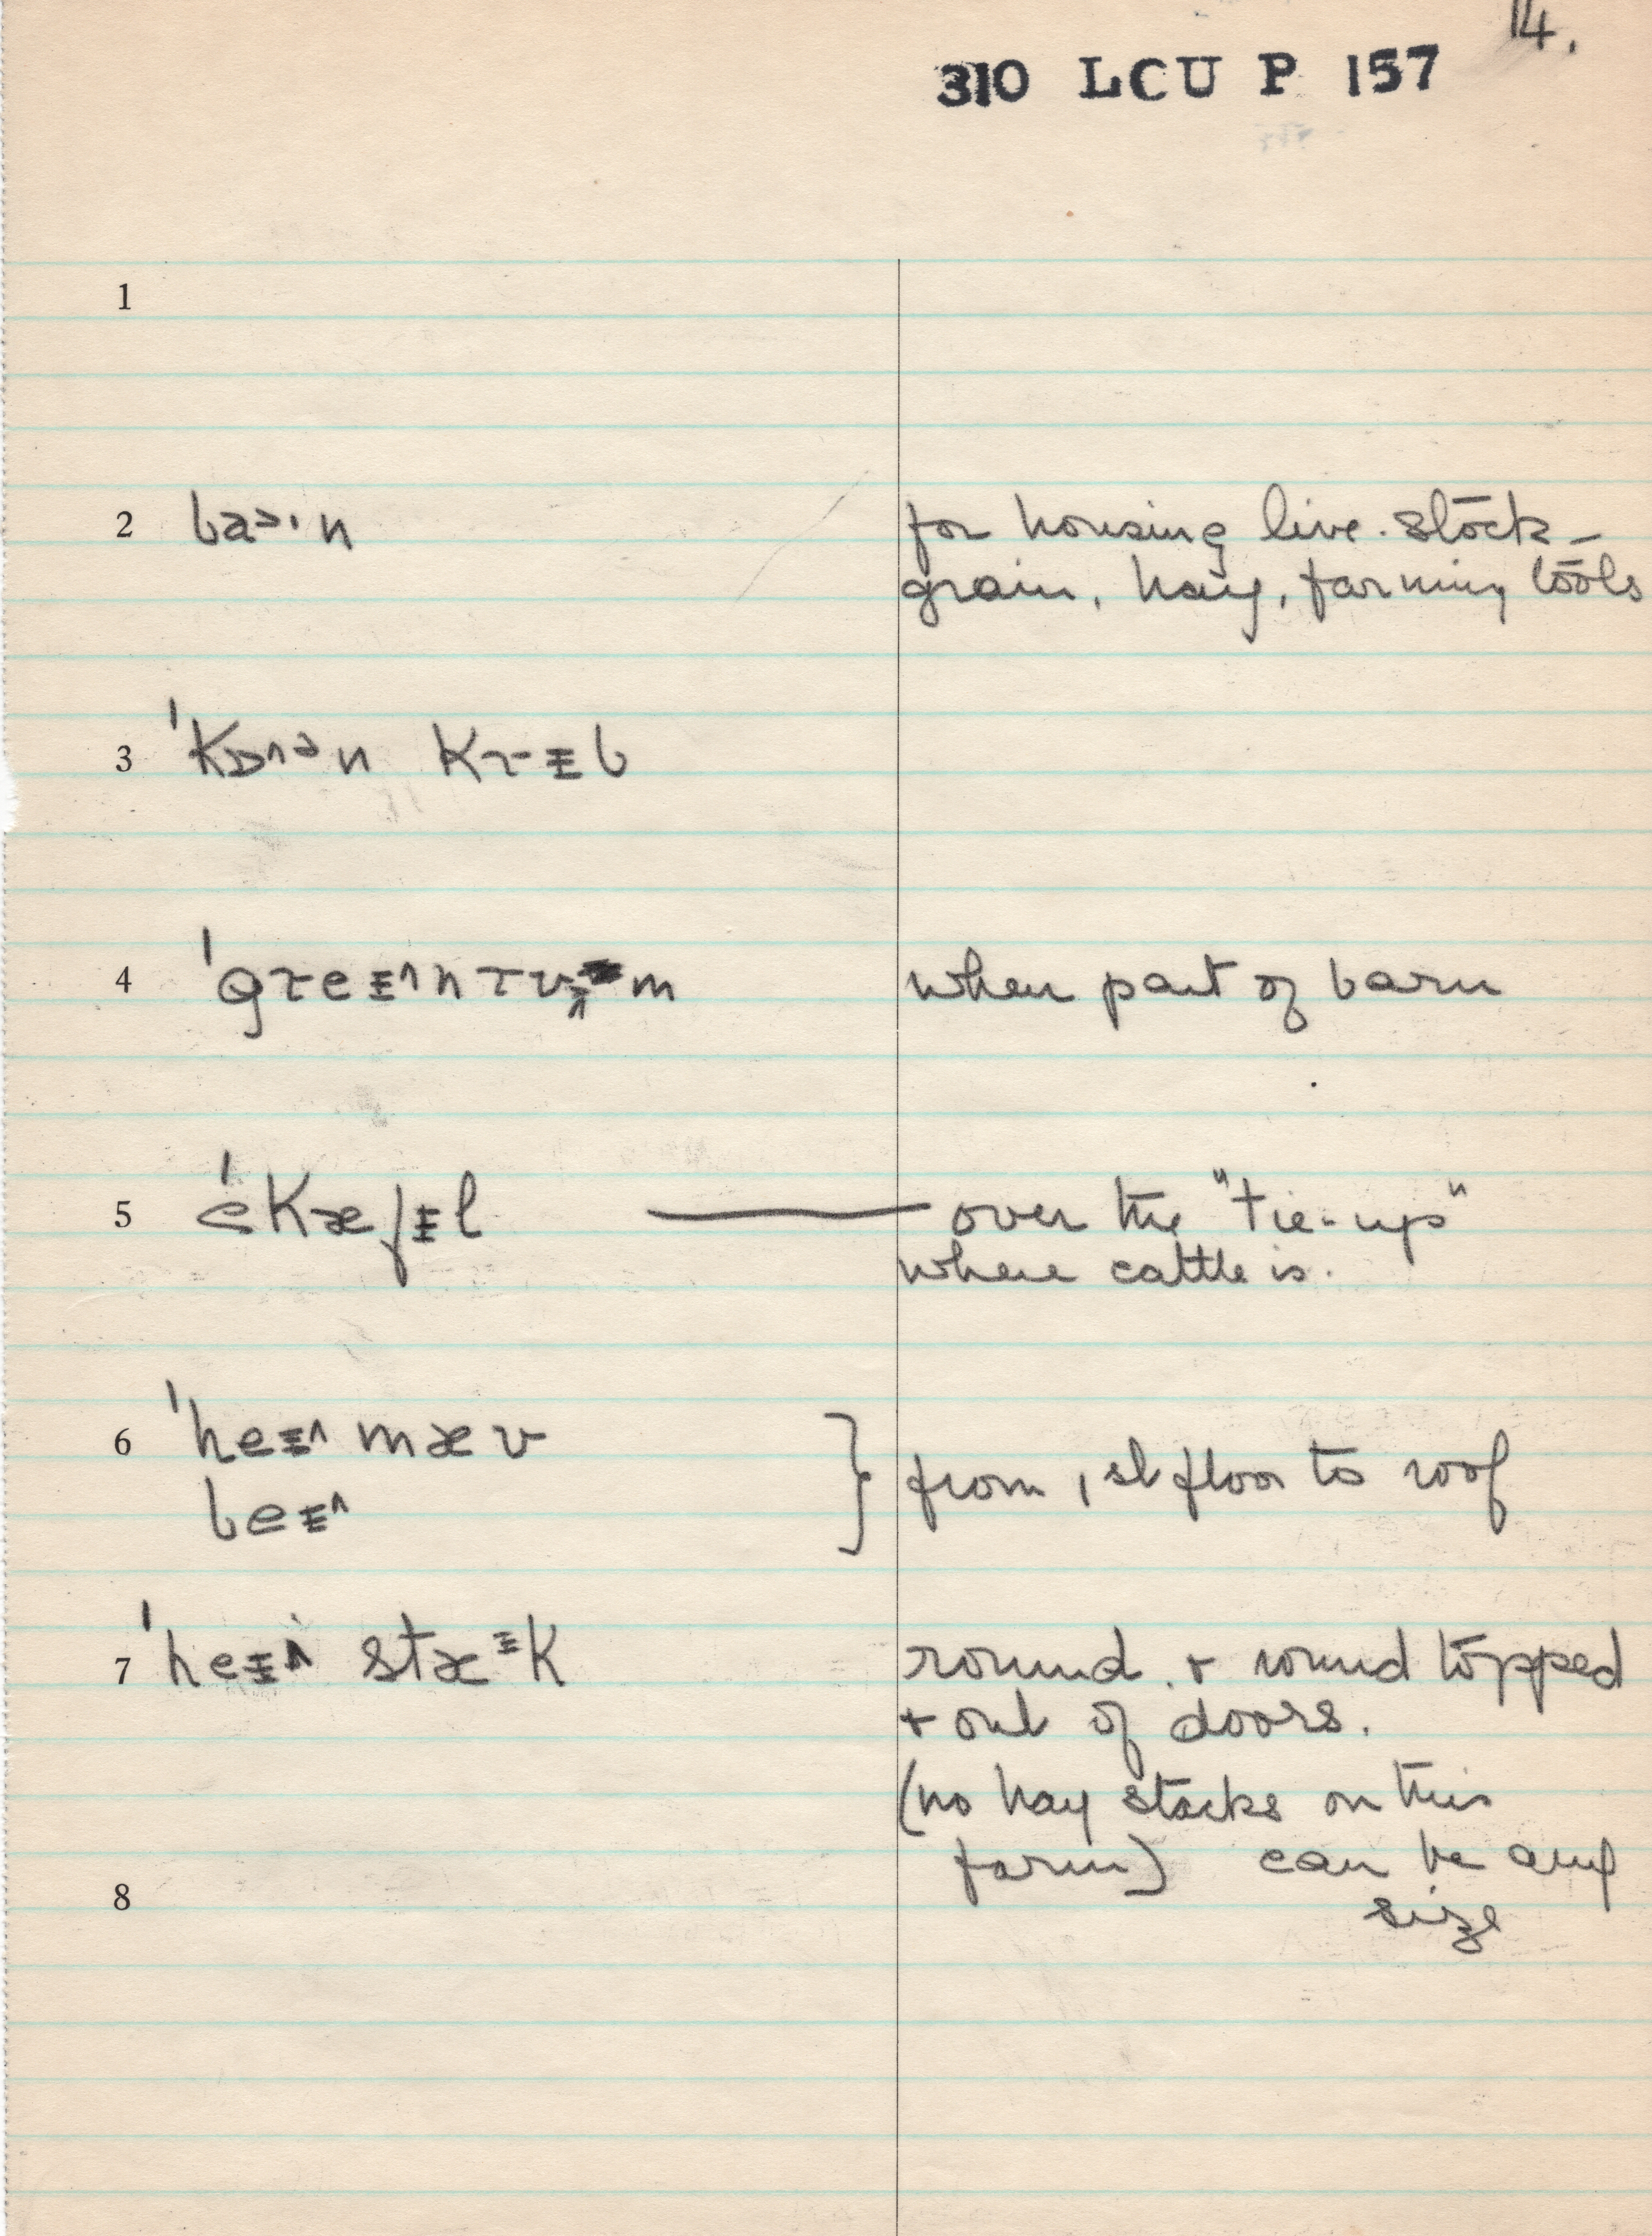 14.
310 LCU P 157
1
2 baɚ·n for housing live-stock –
grain, hay, farming tools
3 ˈkɒ^ɚn krɪb
4 ˈgreɪ^nrʊm when part of barn
5 over the "tie-ups"
where cattle is.
6 ˈheɪ^ mæʊ
beɪ^ } from 1st floor to roof
7 ˈheɪ^ stæᶦk round. + round topped
+ out of doors.
(no hay stacks on this
farm) can be any
8 size